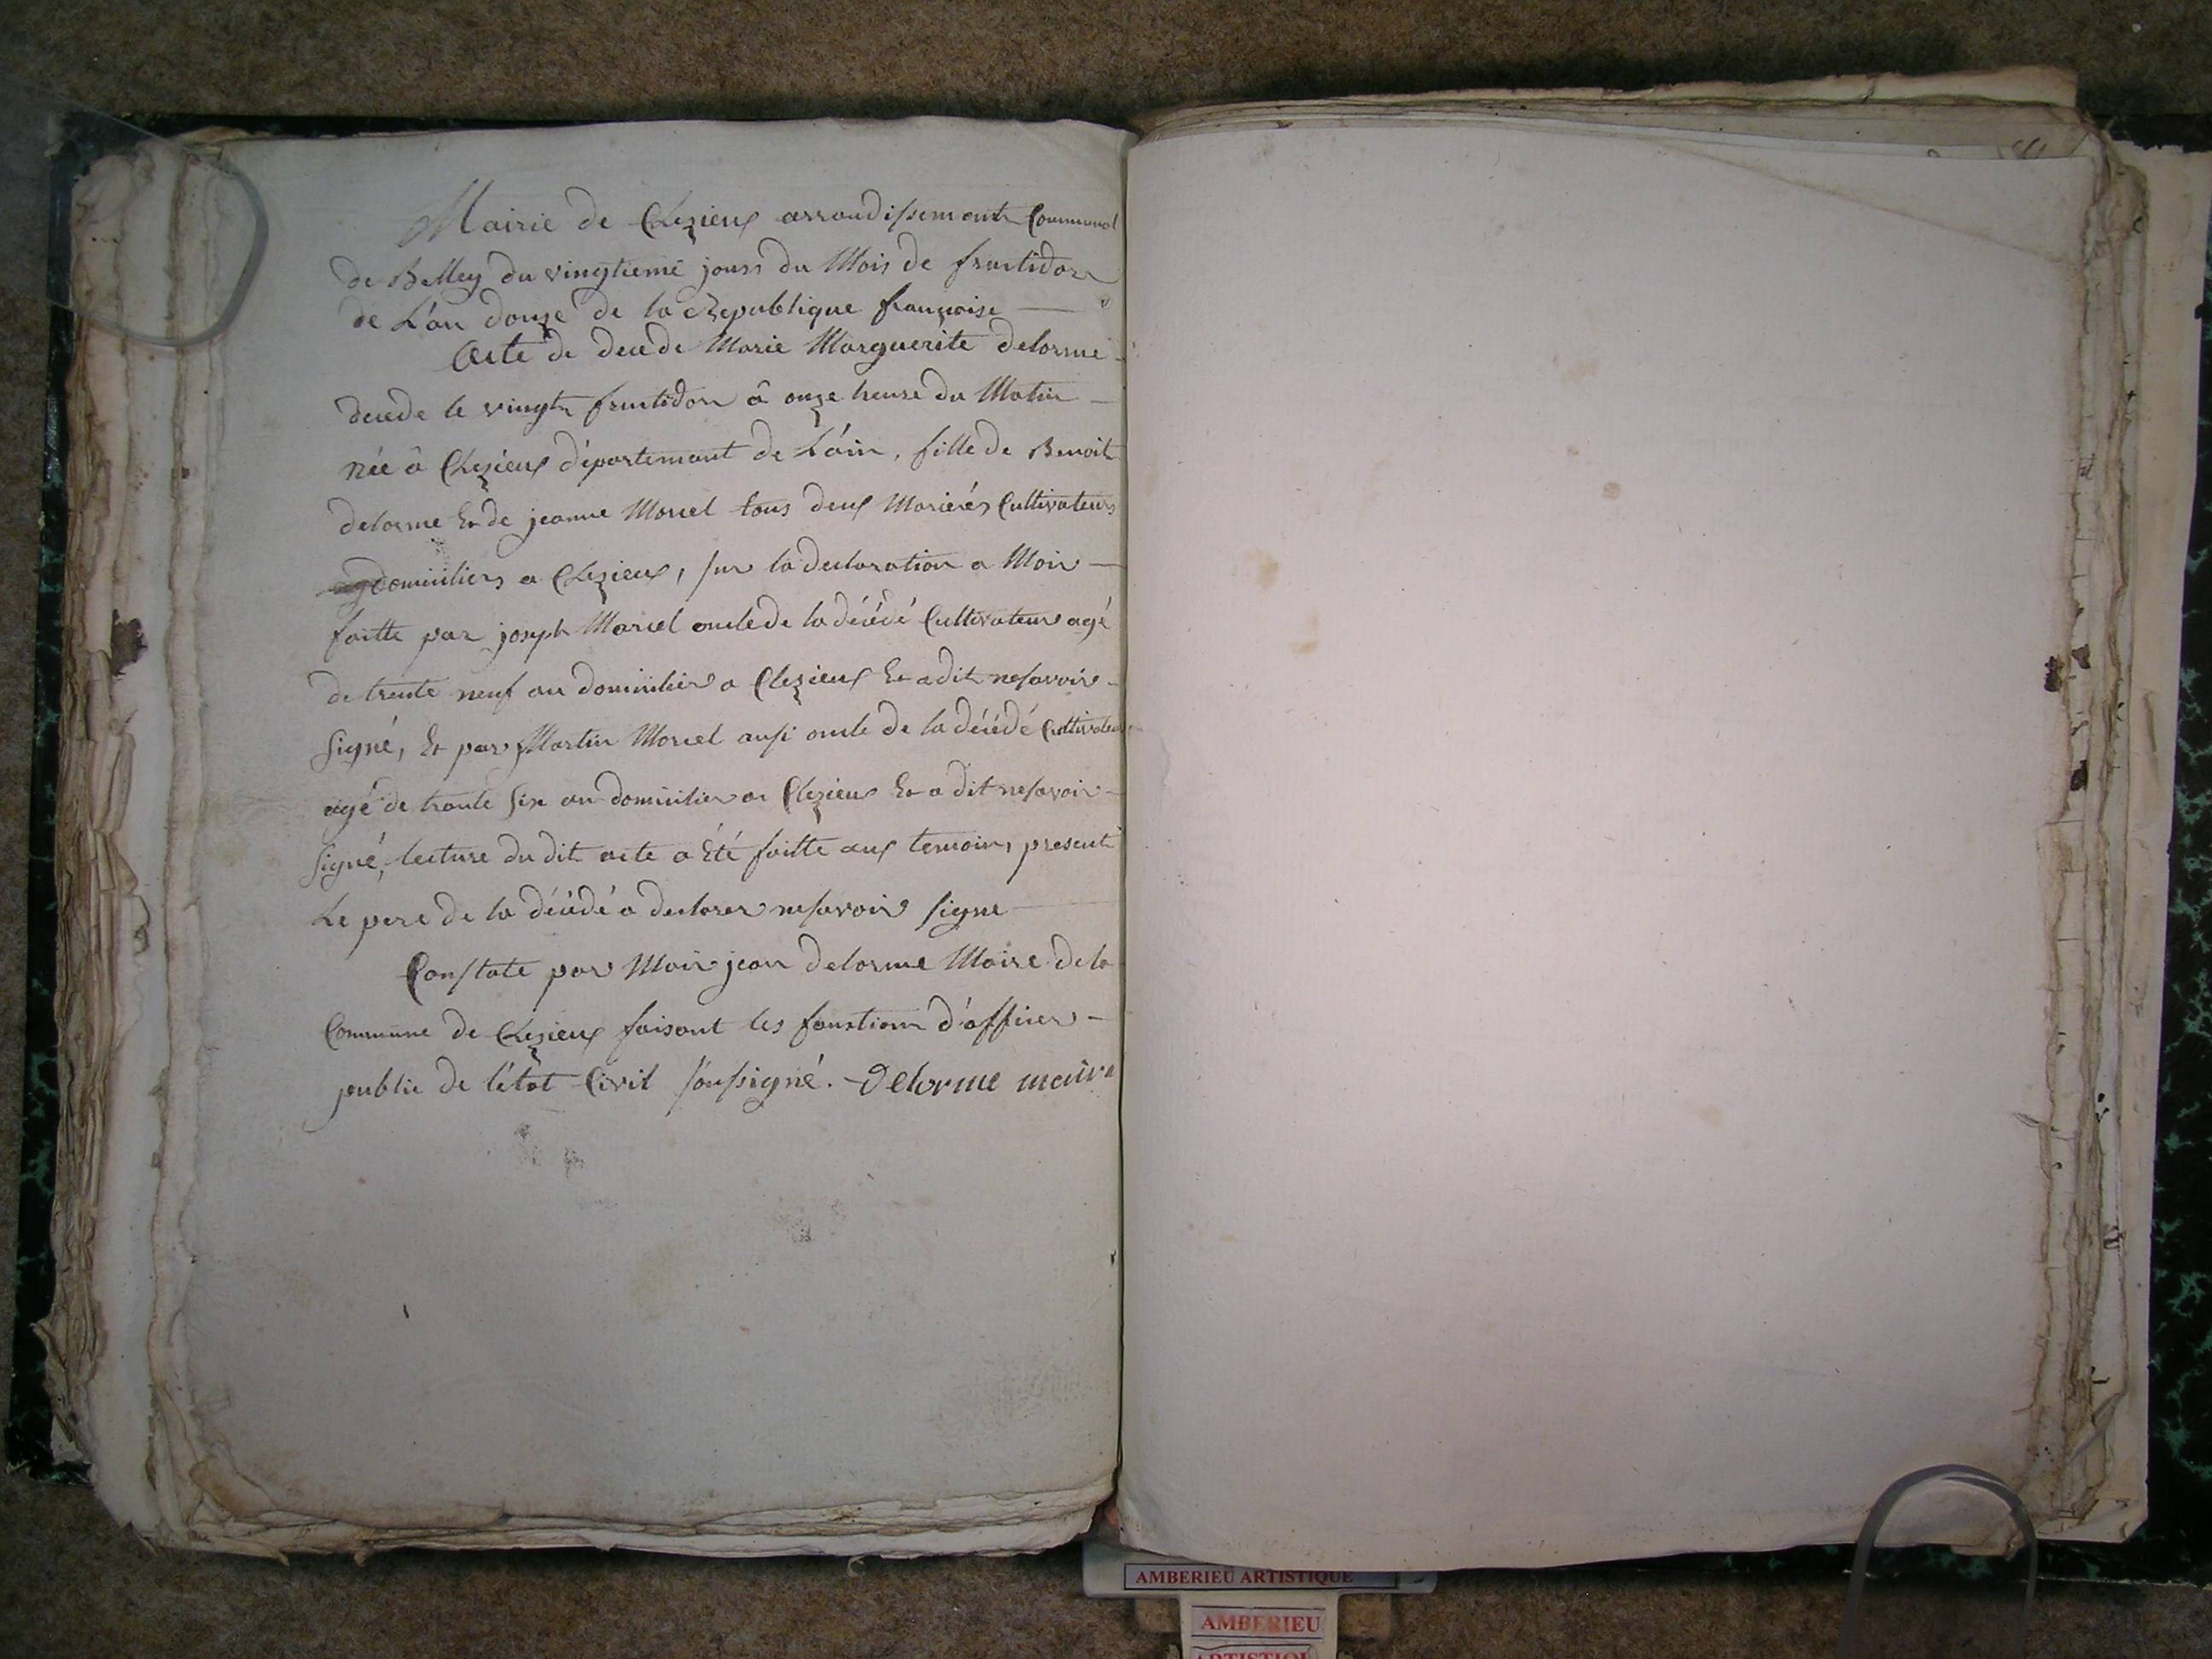 Mairie de Clezieux arrondissement Communal
de Belley du vingtieme jours du Mois de fructidor
de L'an douze de la Republique françoise —
Acte de decede Marie Marguerite delorme
decede le vingt fructidor â onze heure du Matin —
née â Clezieux département de L'ain, fille de Benoit
delorme Et de jeanne Morcel tous deux Mariérés Cultivateurs
domiciliers a Clezieux, sur la declaration a Moi —
faitte par joseph Morcel oncle de la décédé Cultivateur agé
de trente neuf an domicilier a Clezieux Et a dit ne savoir —
signé, Et par Martin Morcel aussi oncle de la décédé Cultivateur
agé de trante six an domicilier a Clezieux Et a dit ne savoir —
signé, lecture du dit acte a Été faitte aux temoins present
Le pere de la décédé a declarer ne savoir signe —
Constate par Moi jean delorme Maire de la
Commune de Clezieux faisant les fonction d'officier —
public de l'état Civil soussigné. Delorme maire
AMBERIEU ARTISTIQUE
AMBERIEU